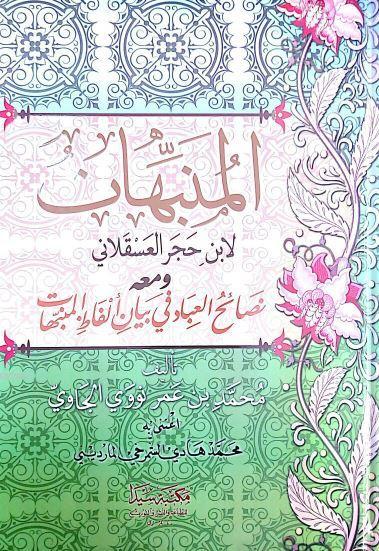 المُنَبِّهَات
لابن حَجَر العَسقَلاني
ومعه
نصائح العباد في بيان ألفاظ المنبهات
تأليف
محمّد بن عمر نووي الجاوي
اعتنى به
محمد هادي الشمرخي المارديني
مكتبة سيدا